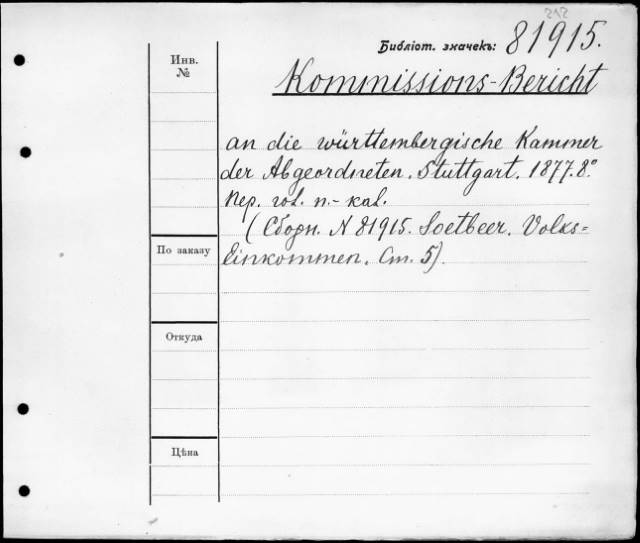 212
Библіот. значекъ: 81915.
Инв.
№
Kommissions-Bericht
an die württembergische Kammer
der Abgeordneten. Stuttgart. 1877. 8.°
(Сборн. N 81915. Soetbeer. Volks=
По заказу
Einkommen. Ст. 5).
Откуда
Цѣна